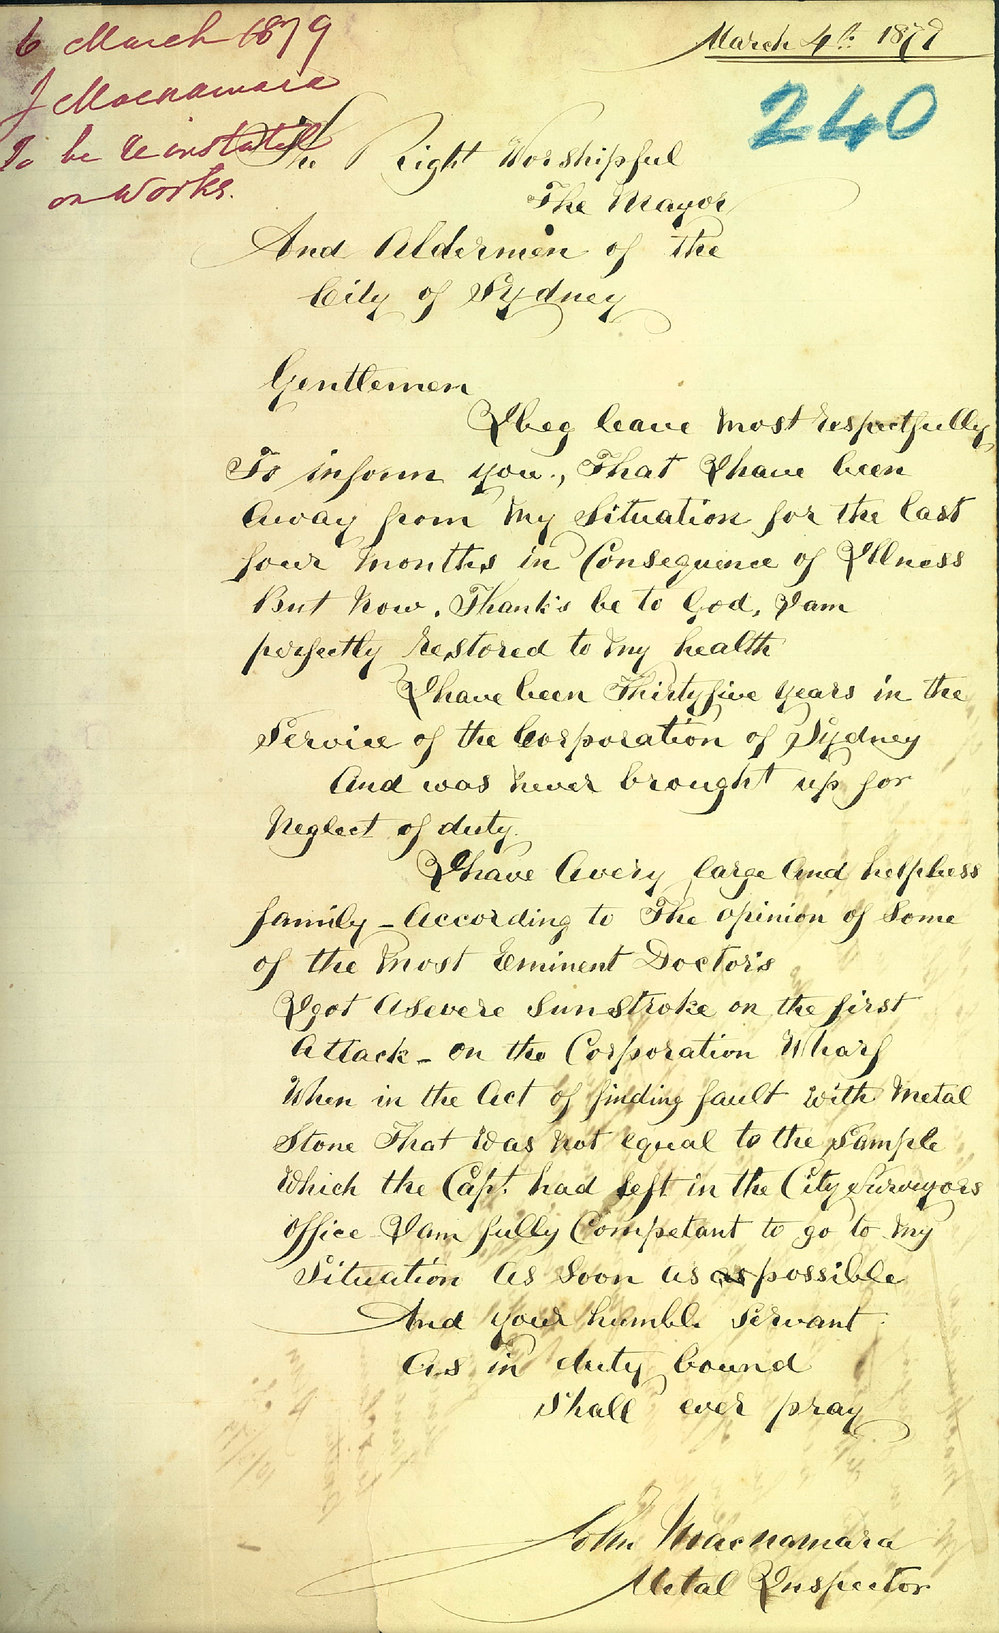 6 March 1879
J Macnamara
To be reinstated
on Works.
March 4th 1879
240
The Right Worshipful
The Mayor
And Aldermen of the
City of Sydney
Gentlemen
I beg leave most respectfully
To inform you, That I have been
Away from my Situation for the last
four months in Consequence of Illness
But Now, Thank's be to God, I am
perfectly restored to my health
I have been Thirty five years in the
Service of the Corporation of Sydney
And was never brought up for
Neglect of duty.
I have A very large And helpless
family - According to The opinion of Some
of the most Eminent Doctor's
I got A severe Sunstroke on the first
Attack - on the Corporation Wharf
When in the Act of finding fault with Metal
Stone That was not equal to the Sample
Which the Capt. had left in the City Surveyors
office I am fully Competant to go to my
Situation As Soon as as possible
And your humble Servant
As in duty bound
Shall ever pray
John Macnamara
Metal Inspector